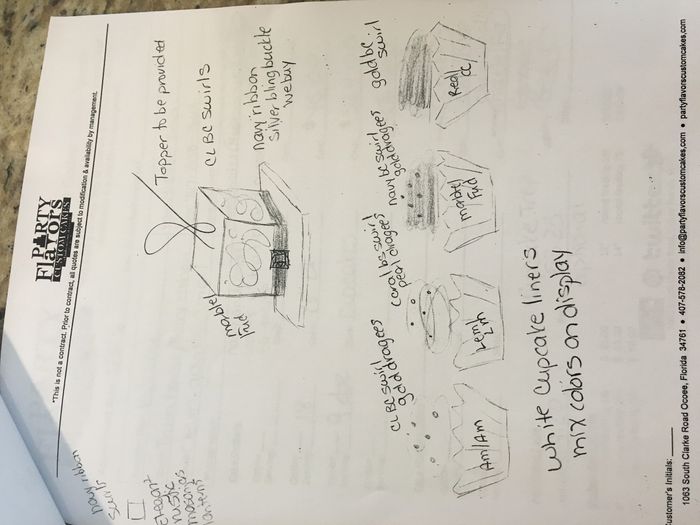 PARTY
Flavors
CUSTOM CAKES
*This is not a contract. Prior to contract, all quotes are subject to modification & availability by management.
navy ribbon
Elegant
rustic
lanterns
Topper to be provided
CLBC swirls
navy ribbon
silver bling buckle
we buy
marble/
Fud
CLBC swirl
gold dragees
coral bs swirl
pearl dragees
navy bc swirl
gold dragees
gold bc
swirl
Am/Am
marbel
Fud
Red/
CC
White Cupcake liners
mix colors on display
ustomer's Initials:
1063 South Clarke Road Ocoee, Florida 34761 • 407-578-2082 • info@partyflavorscustomcakes.com • partyflavorscustomcakes.com